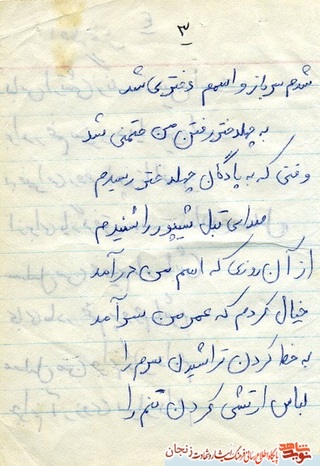 ۳
شدم سرباز و اسمم دفتری شد
به چهلدختر رفتن من حتمی شد
وقتی که به پادگان چهلدختر رسیدم
صدای طبل شیپور را شنیدم
از آن روزی که اسم من در آمد
خیال کردم که عمر من سر آمد
به خط کردن تراشیدن سرم را
لباس ارتشی کردن تنم را
نوید شاهد
پایگاه اطلاع رسانی فرهنگ ایثار و شهادت زنجان